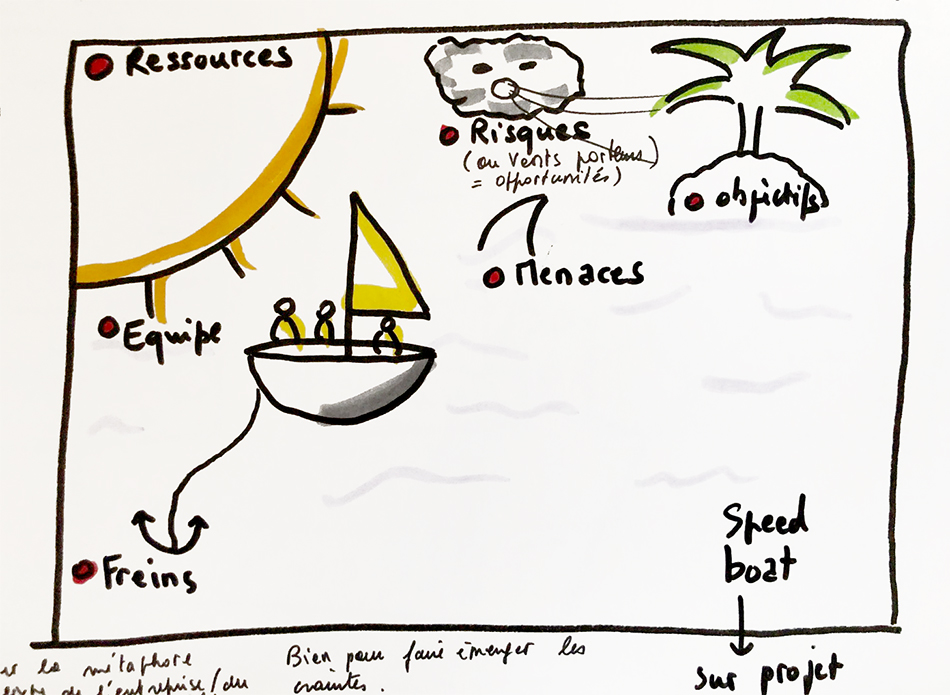 Ressources
Risques
(ou vents porteurs)
= opportunités)
objectifs
Menaces
Equipe
Freins
Speed
boat
sur projet
la métaphore
de l'entreprise/du
Bien pour faire émerger les
craintes.